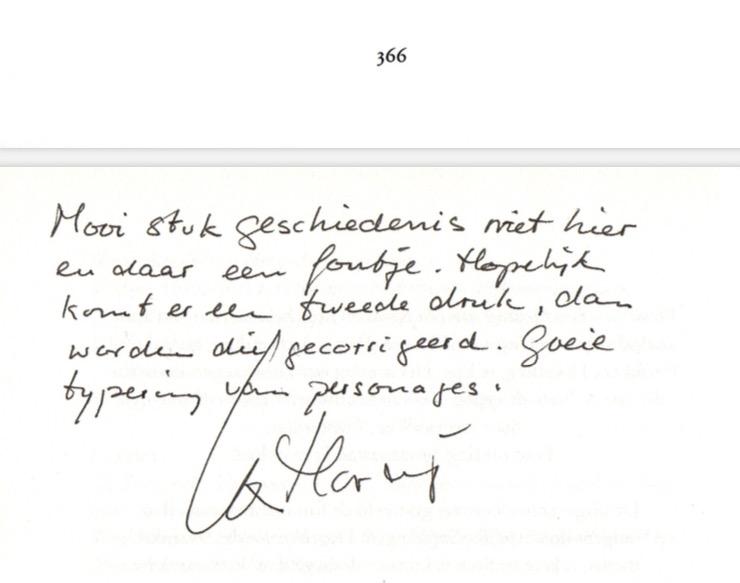 366
Mooi stuk geschiedenis met hier
en daar een foutje. Hopelijk
komt er een tweede druk, dan
worden die gecorrigeerd. Goeie
typering van personages.